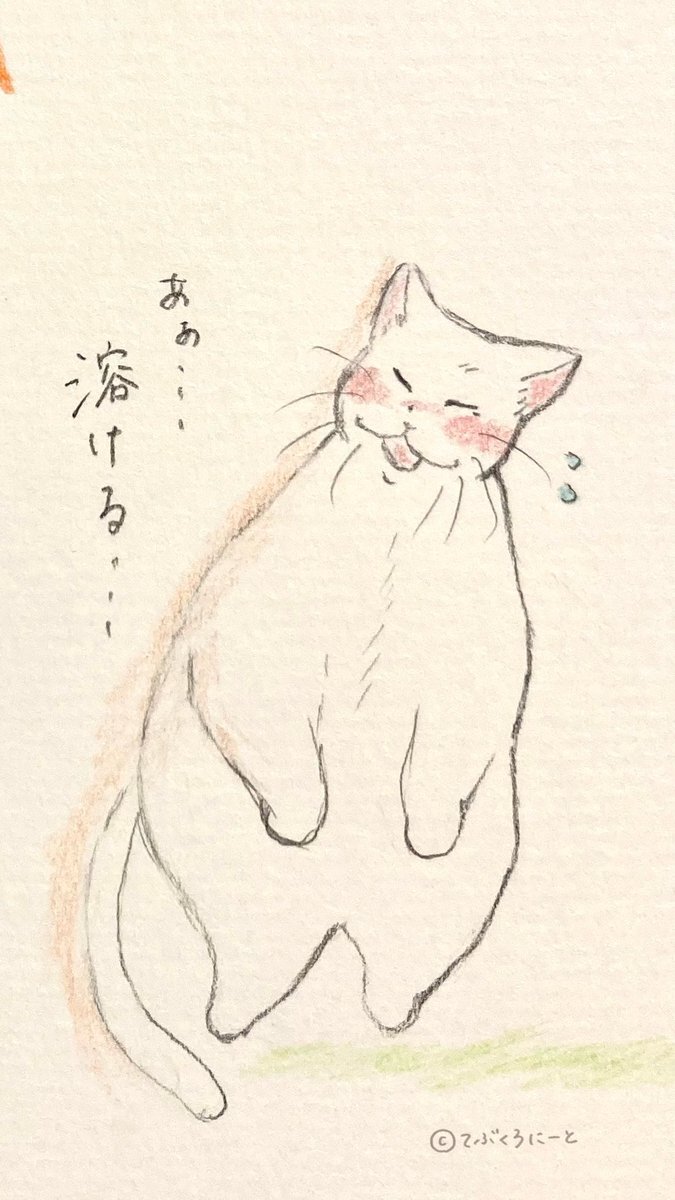 ああ・・・
溶ける・・・
©てぶくろにーと